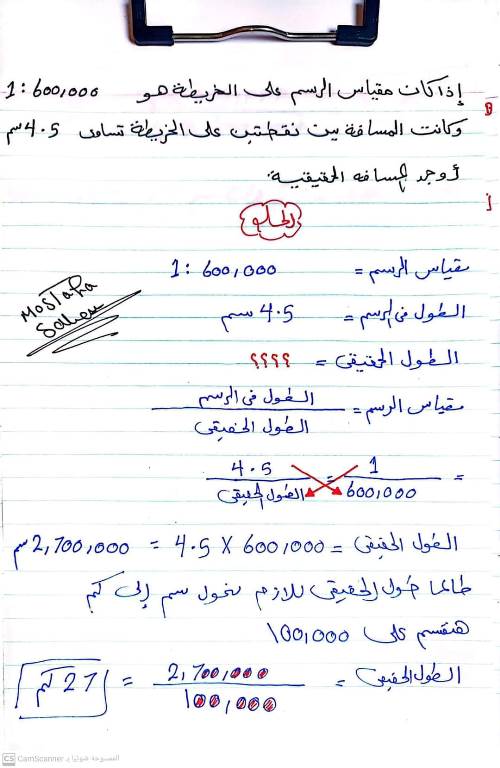 إذا كان مقياس الرسم على الخريطة هو 1:600,000
وكانت المسافة بين نقطتين على الخريطة تساوى 4.5 سم
أوجد المسافه الحقيقية.
الحلو
مقياس الرسم = 1:600,000
الطول فى الرسم = 4.5 سم
الطول الحقيقى = ؟؟؟؟
مقياس الرسم = الطول فى الرسم / الطول الحقيقى
= 1 / 600,000 = 4.5 / الطول الحقيقى
الطول الحقيقى = 4.5 X 600,000 = 2,700,000 سم
طالما طول الحقيقى للازم نحول سم إلى كم
هنقسم على 100,000
الطول الحقيقى = 2,700,000 / 100,000 = 27 كم
Mostafa
CS CamScanner الممسوحة ضوئيا بـ